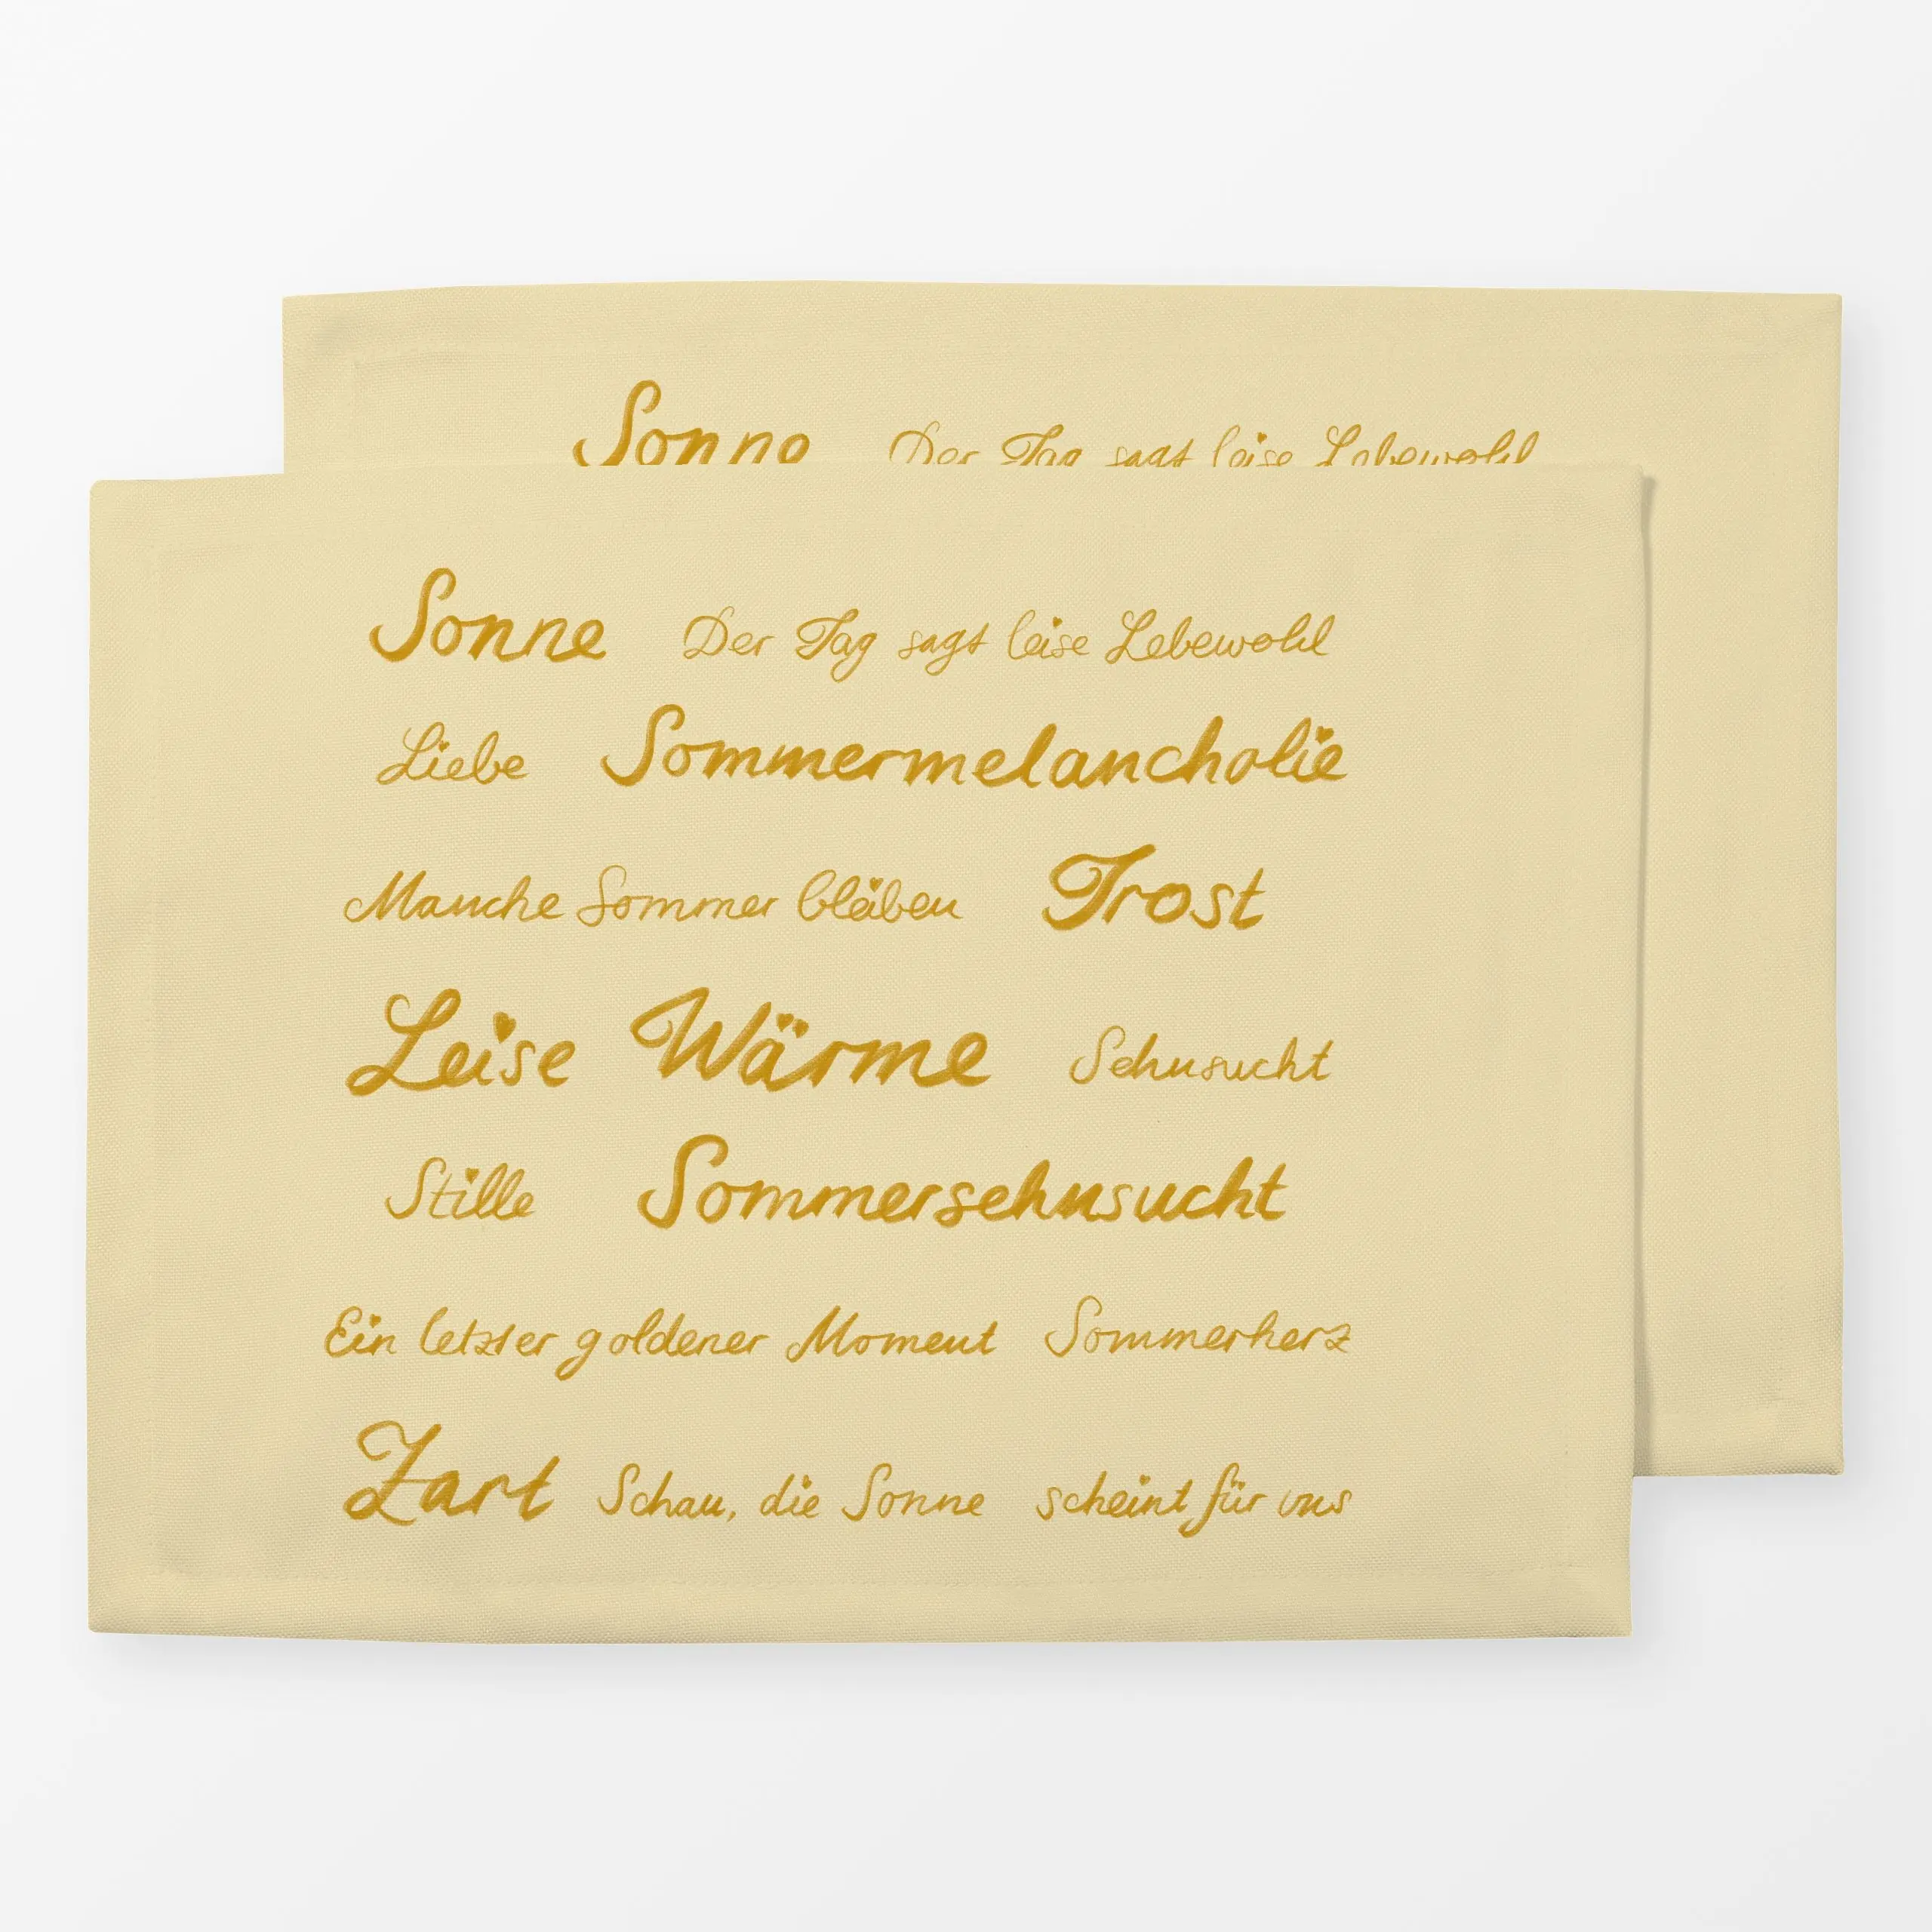 Sonne Der Tag sagt leise Lebewohl
Sonne Der Tag sagt leise Lebewohl
Liebe Sommermelancholie
Manche Sommer bleiben Trost
Leise Wärme Sehnsucht
Stille Sommersehnsucht
Ein letzter goldener Moment Sommerherz
Zart Schau, die Sonne scheint für uns